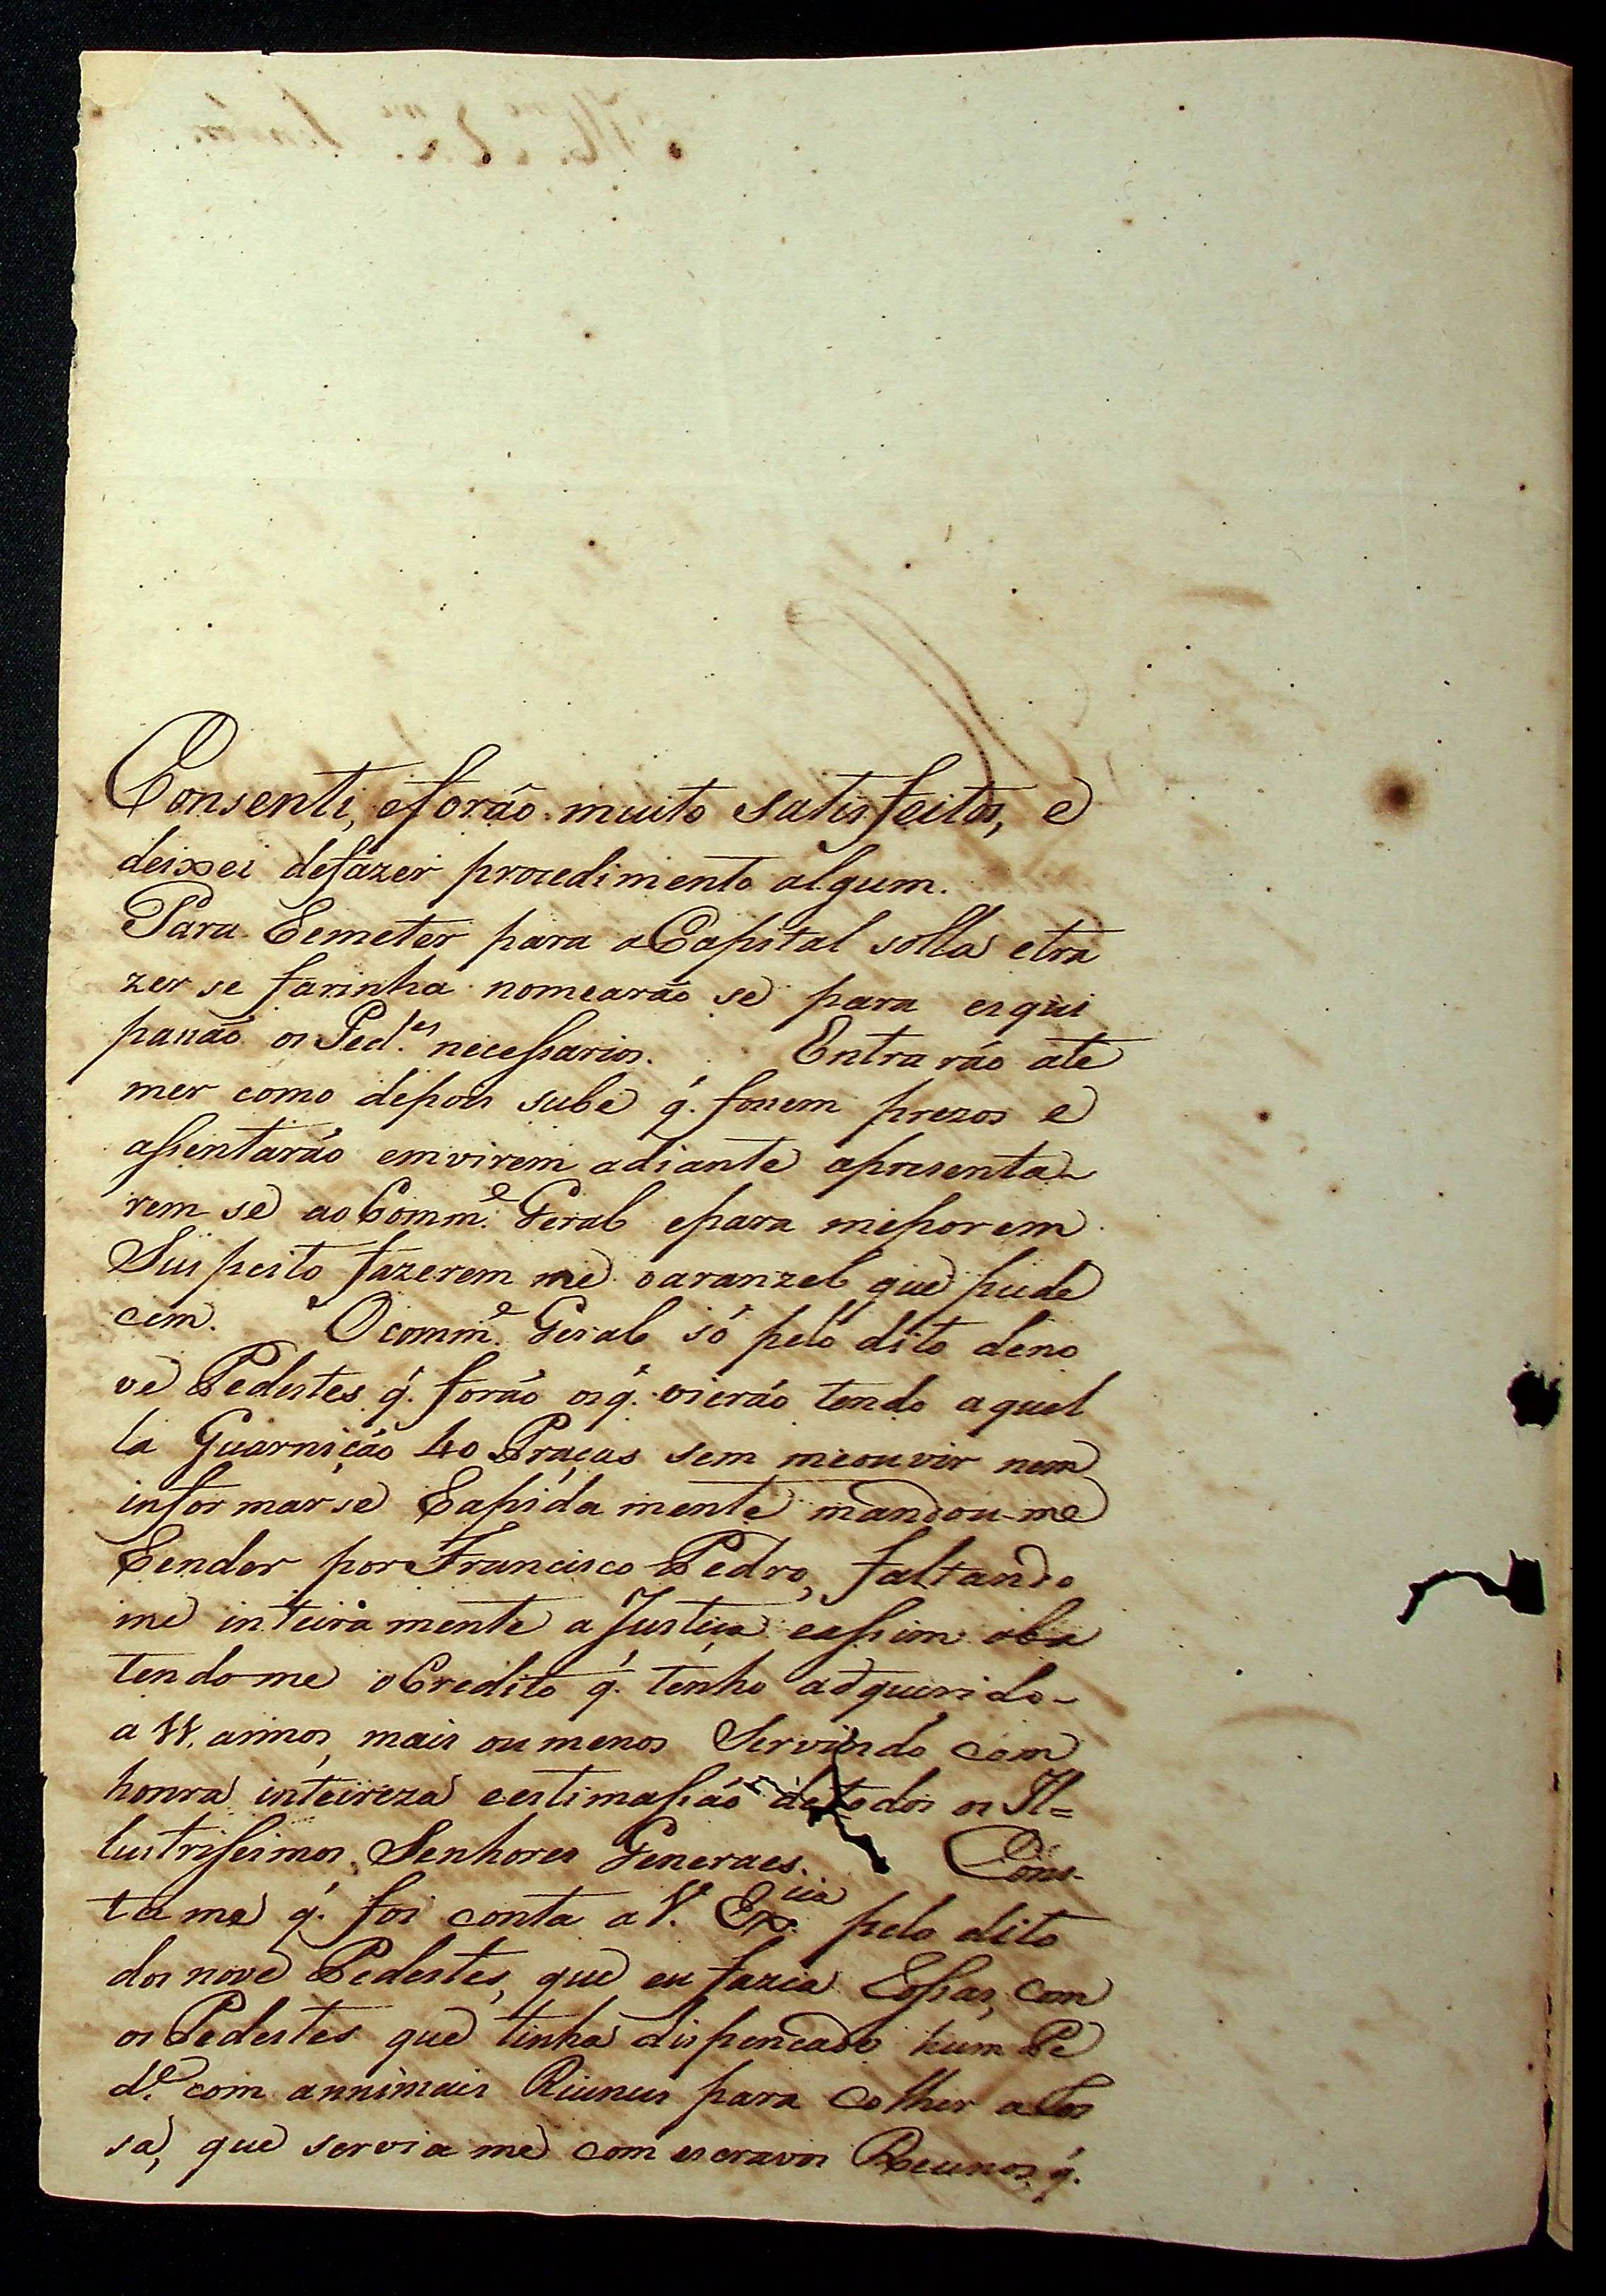 Consenti, eforão muito satisfeitos, e
deixei defazer procedimento algum.
Para Remeter para aCapital solla etra
zer se farinha nomearão se para esqui
pauão os Ped.es necessarios. Entrarão ate
mer como depois sube q̃. fossem prezos e
assentarão emvirem adiante apresenta-
rem se ao Comm.e Geral epara meporem
Suspeito fazerem me oaranzel que pude
cem. O comm.e Geral só pelo dito deno
ve Pedestes q̃. forão os q̃. vierão tendo aquel
la Guarnição 40 Praças sem meouvir nem
informarse Rapidamente mandou-me
Render por Francisco Pedro, faltando
me inteiramente a Justiça eassim aba
tendo-me oCredito q̃. tenho adquirido-
a annos, mais oumenos Servindo com
honra inteireza eestimassão detodos os Il=
lustrissimos Senhores Generaes. Cons-
ta me q̃. foi conta a V. Ex.cia pelo dito
dos nove Pedestes, que eu fazia Rossas, com
os Pedestes que tinha dispencado hum Pe
d.e com annimais Riunus para Colher a Ros
sa, que servia me com escravos Reunos, q̃.